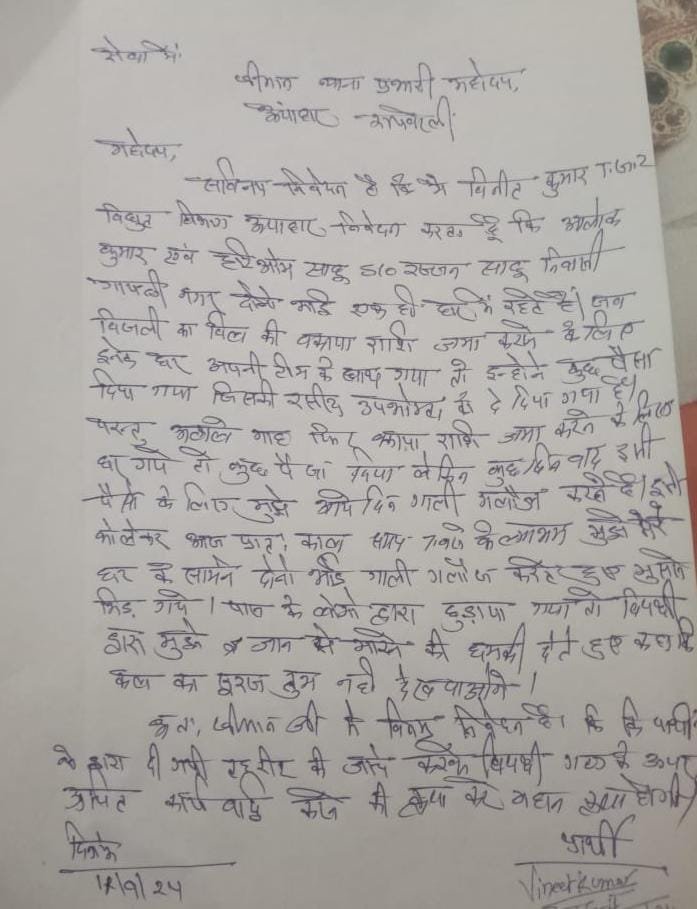 सेवा में,
श्रीमान थाना प्रभारी महोदय,
महोदय,
सविनय निवेदन है कि मैं विनीत कुमार T.G.2
विद्युत विभाग निवेदन करता हूँ कि आलोक
कुमार एवं हरिओम साहू S/o रज्जन साहू निवासी
नगर दोनो भाई एक ही घर में रहते हैं। जब
बिजली का बिल की बकाया राशि जमा करने के लिए
इनके घर अपनी टीम के साथ गया तो इन्होने कुछ पैसा
दिया गया जिसकी रसीद उपभोक्ता को दे दिया गया है।
परन्तु अगले माह फिर बकाया राशि जमा करने के लिए
घर गये तो कुछ पैसा दिया लेकिन कुछ दिन बाद इसी
पैसे के लिए मुझे आये दिन गाली गलौज करते है। इसी
को लेकर आज प्रात: काल समय 7 बजे के लगभग मुझे मेरे
घर के सामने दोनो भाई गाली गलौज करते हुए मुझसे
भिड़ गये। पास के लोगो द्वारा छुड़ाया गया तो विपक्षी
द्वारा मुझे जान से मारने की धमकी देते हुए कहा कि
कल का सूरज तुम नही देख पाओगे।
अत: श्रीमान जी से विनम्र निवेदन है। कि प्रार्थी
के द्वारा दी गयी तहरीर की जांच करके विपक्षी गण के ऊपर
उचित कार्यवाही करने की कृपा करे महान कृपा होगी।
दिनांक प्रार्थी
Vineet Kumar